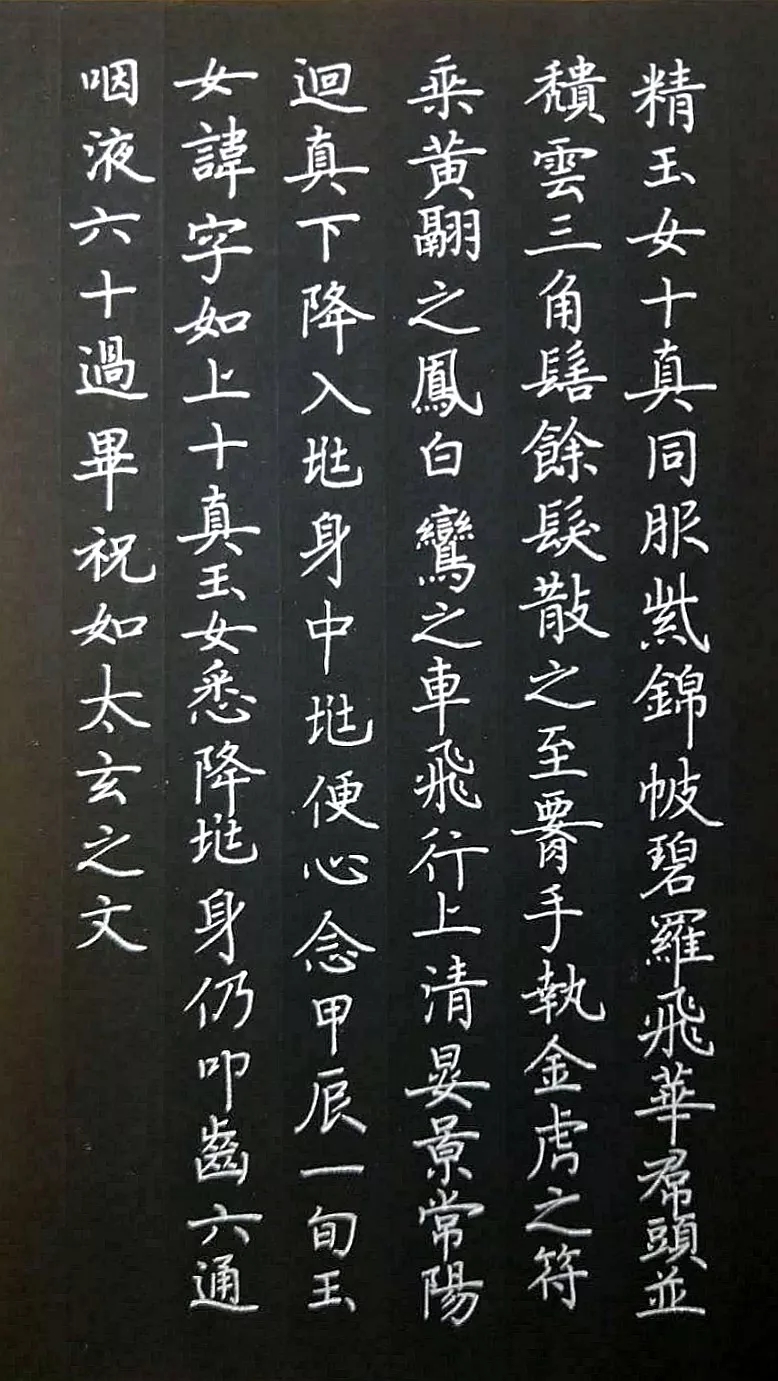 精玉女十真同服紫錦帔碧羅飛華帬頭並
穨雲三角髻餘髮散之至腰手執金虎之符
乘黃翮之鳳白鸞之車飛行上清晏景常陽
迴真下降入地身中地便心念甲辰一旬玉
女諱字如上十真玉女悉降地身仍叩齒六通
咽液六十過畢祝如太玄之文